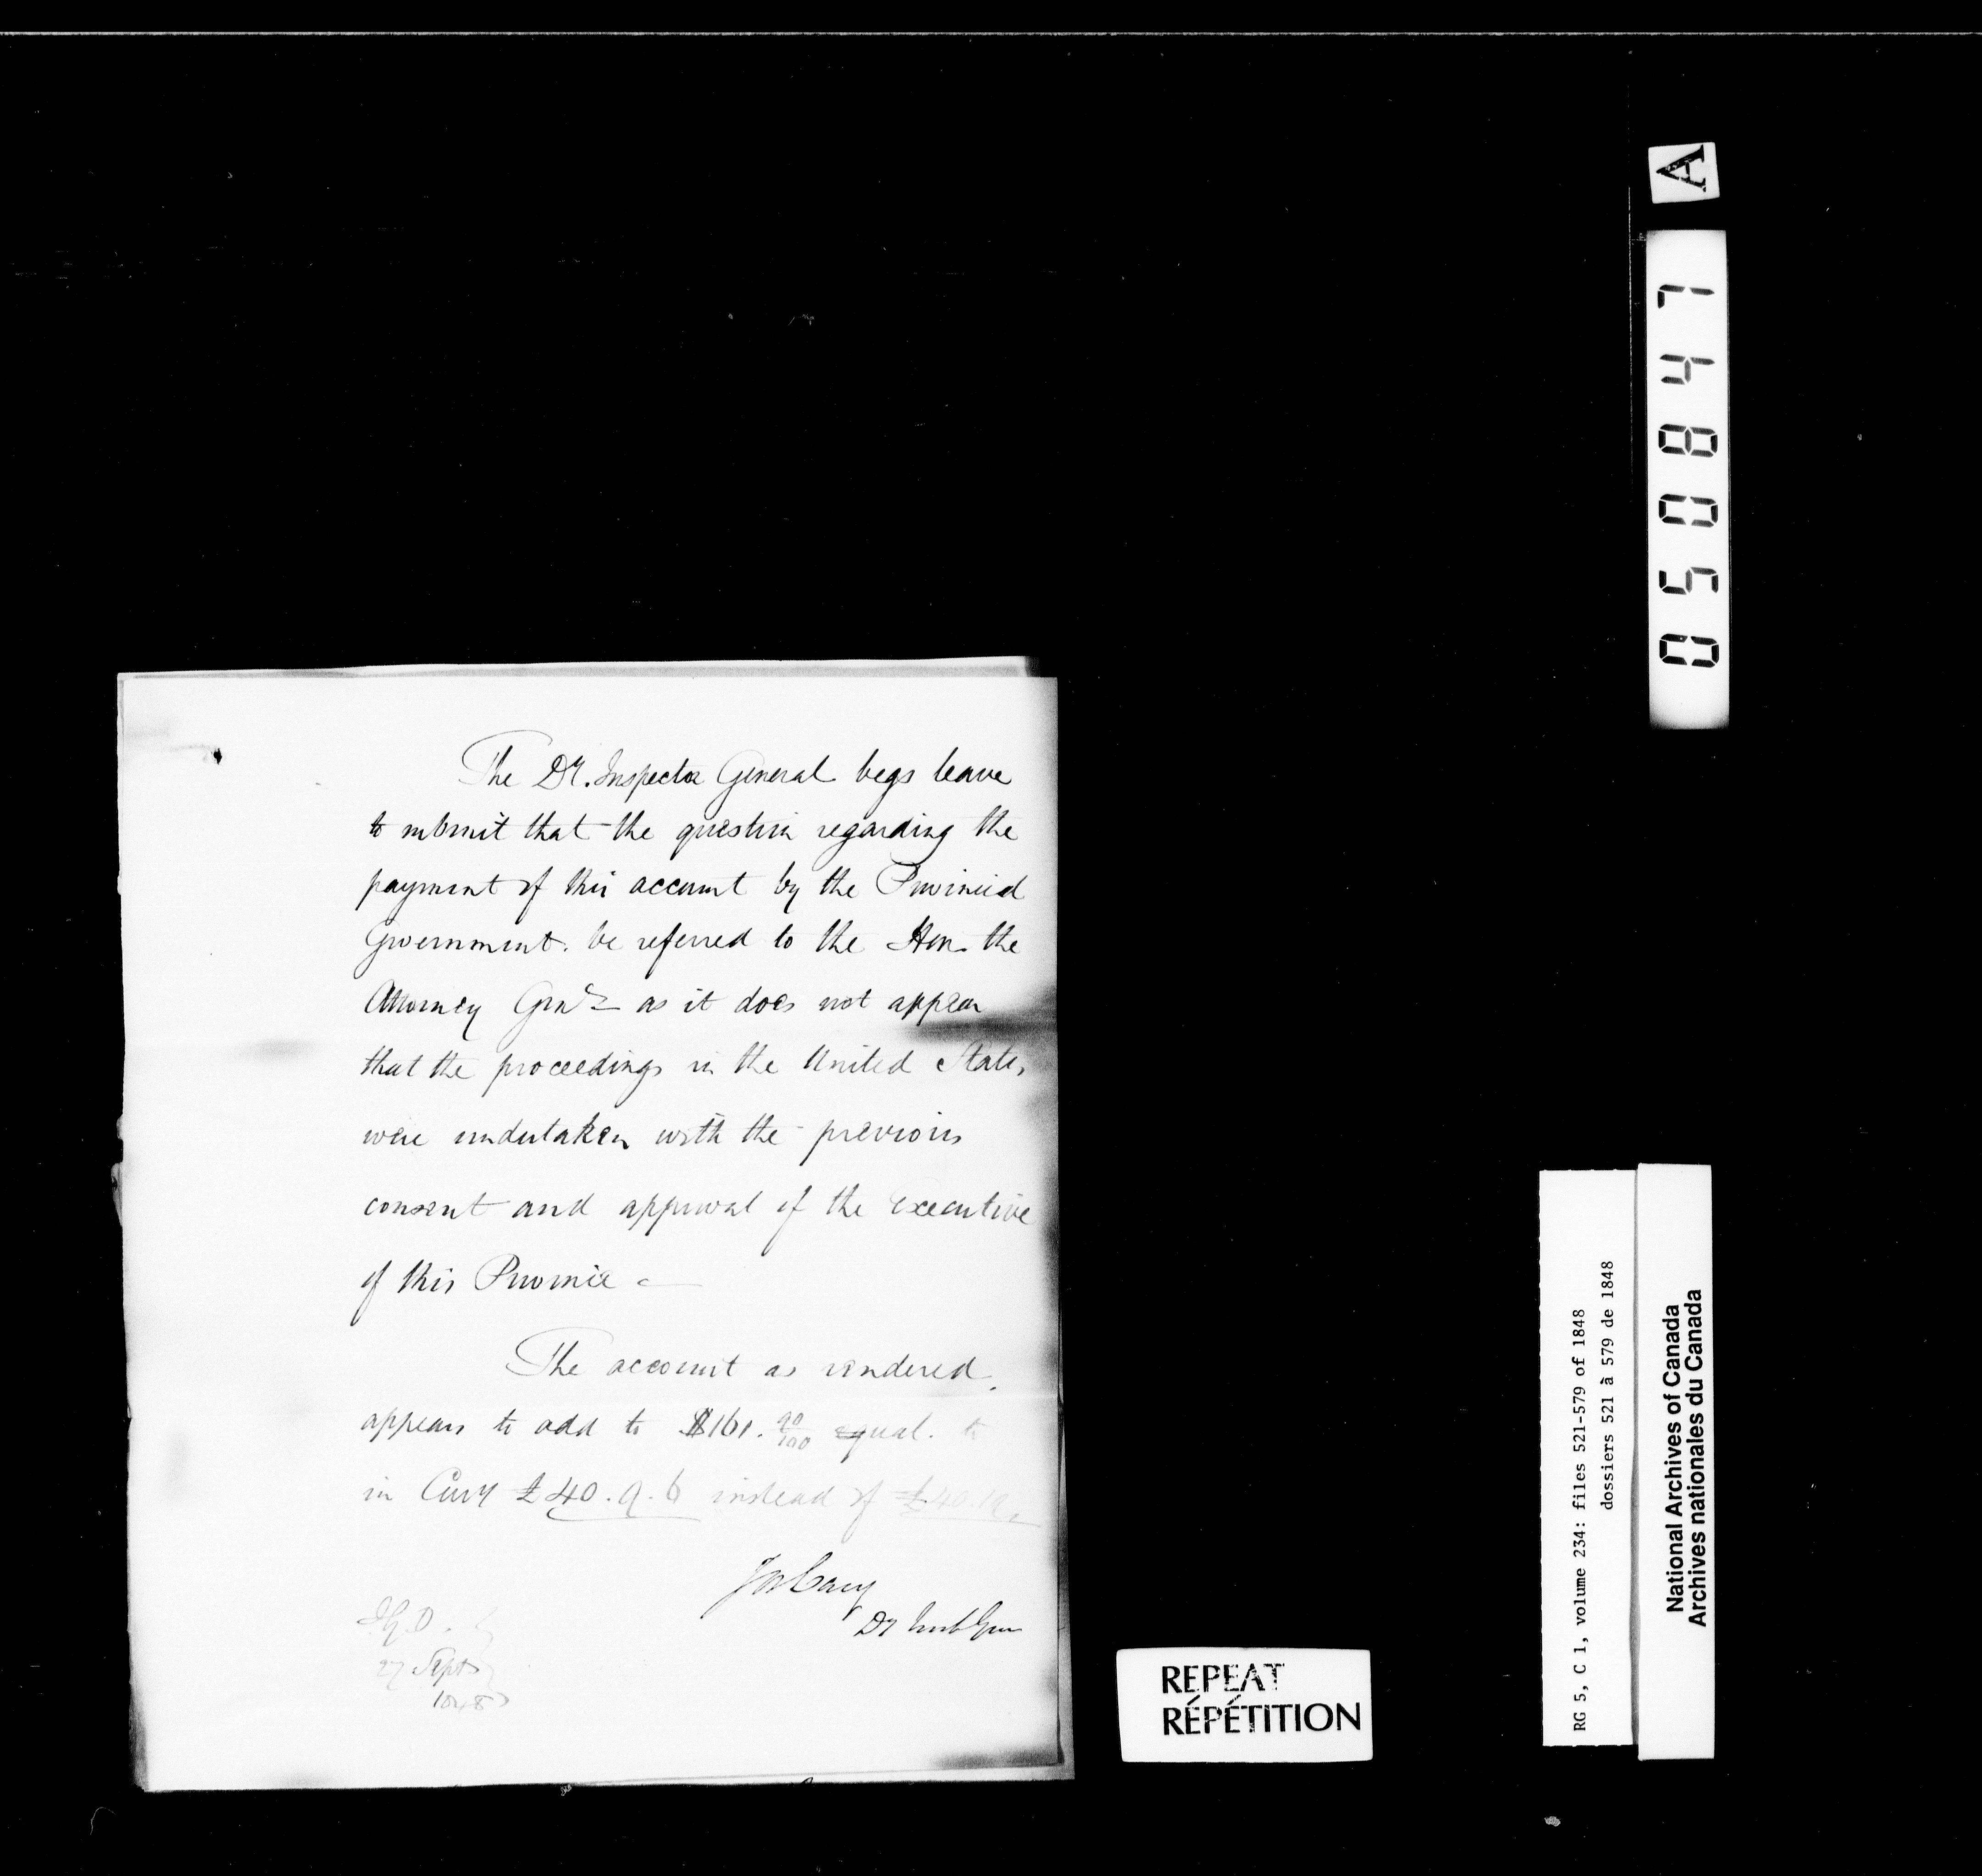 The Dy. Inspector General begs leave
to submit that the question regarding the
payment of this account by the Provincial
Government. be referred to the Hon. the
Attorney Genl as it does not appear
that the proceedings in the United States
were undertaken with the previous
consent and approval of the Executive
of this Province —
The account as rendered
appears to add to $161. 90/100 equal. to
in Curry £40.9.6 instead of £40.19.
Jos Cary
Dy Insp Gen
I.G.O.
27 Septr
1848
A
050847
REPEAT
RÉPÉTITION
RG 5, C 1, volume 234: files 521-579 of 1848
dossiers 521 à 579 de 1848
National Archives of Canada
Archives nationales du Canada